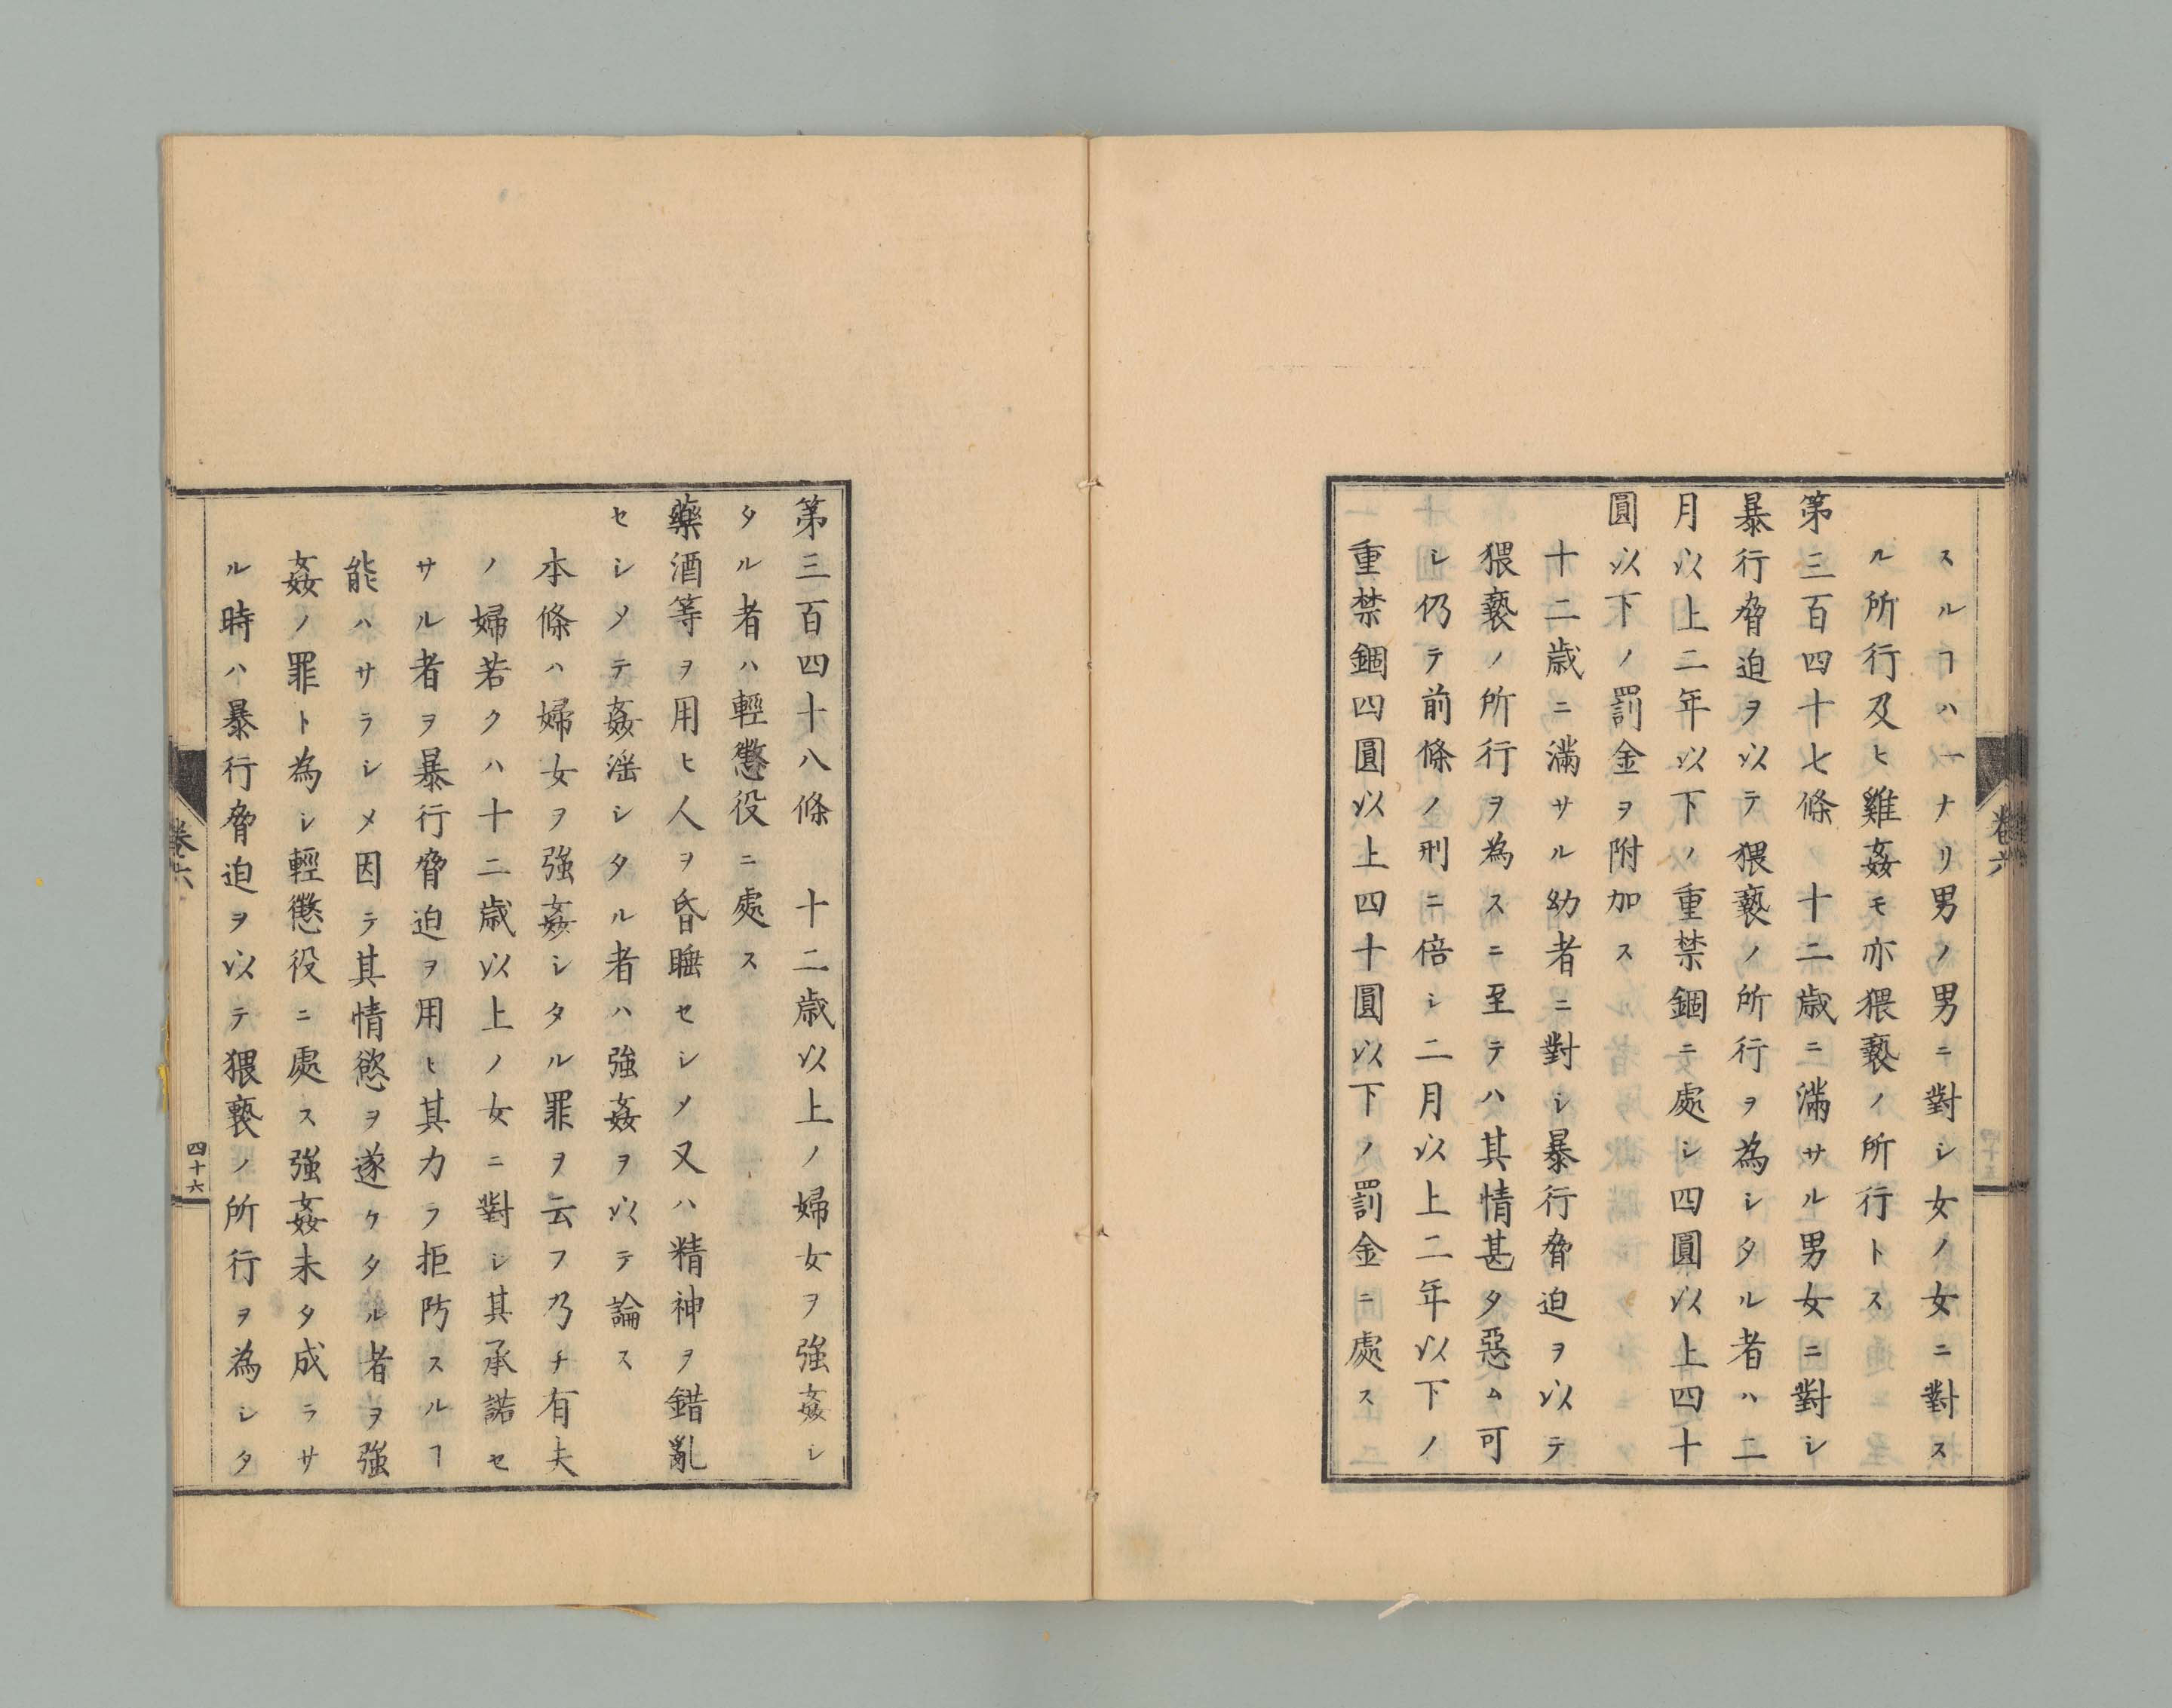 スルヿハ一ナリ男ノ男ニ對シ女ノ女ニ對ス
ル所行及ヒ雞姦モ亦猥褻ノ所行トス
第三百四十七條　十二歳ニ滿サル男女ニ對シ
暴行脅迫ヲ以テ猥褻ノ所行ヲ為シタル者ハ二
月以上二年以下ノ重禁錮ニ處シ四圓以上四十
圓以下ノ罰金ヲ附加ス
十二歳ニ滿サル幼者ニ對シ暴行脅迫ヲ以テ
猥褻ノ所行ヲ為スニ至テハ其情甚タ惡ム可
シ仍テ前條ノ刑ニ倍シ二月以上二年以下ノ
重禁錮四圓以上四十圓以下ノ罰金ニ處ス
卷六
第三百四十八條　十二歳以上ノ婦女ヲ強姦シ
タル者ハ輕懲役ニ處ス
藥酒等ヲ用ヒ人ヲ昏睡セシメ又ハ精神ヲ錯亂
セシメテ姦淫シタル者ハ強姦ヲ以テ論ス
本條ハ婦女ヲ強姦シタル罪ヲ云フ乃チ有夫
ノ婦若クハ十二歳以上ノ女ニ對シ其承諾セ
サル者ヲ暴行脅迫ヲ用ヒ其力ラ拒防スルヿ
能ハサラシメ因テ其情慾ヲ遂ケタル者ヲ強
姦ノ罪ト為シ輕懲役ニ處ス強姦未タ成ラサ
ル時ハ暴行脅迫ヲ以テ猥褻ノ所行ヲ為シタ
卷六
四十六